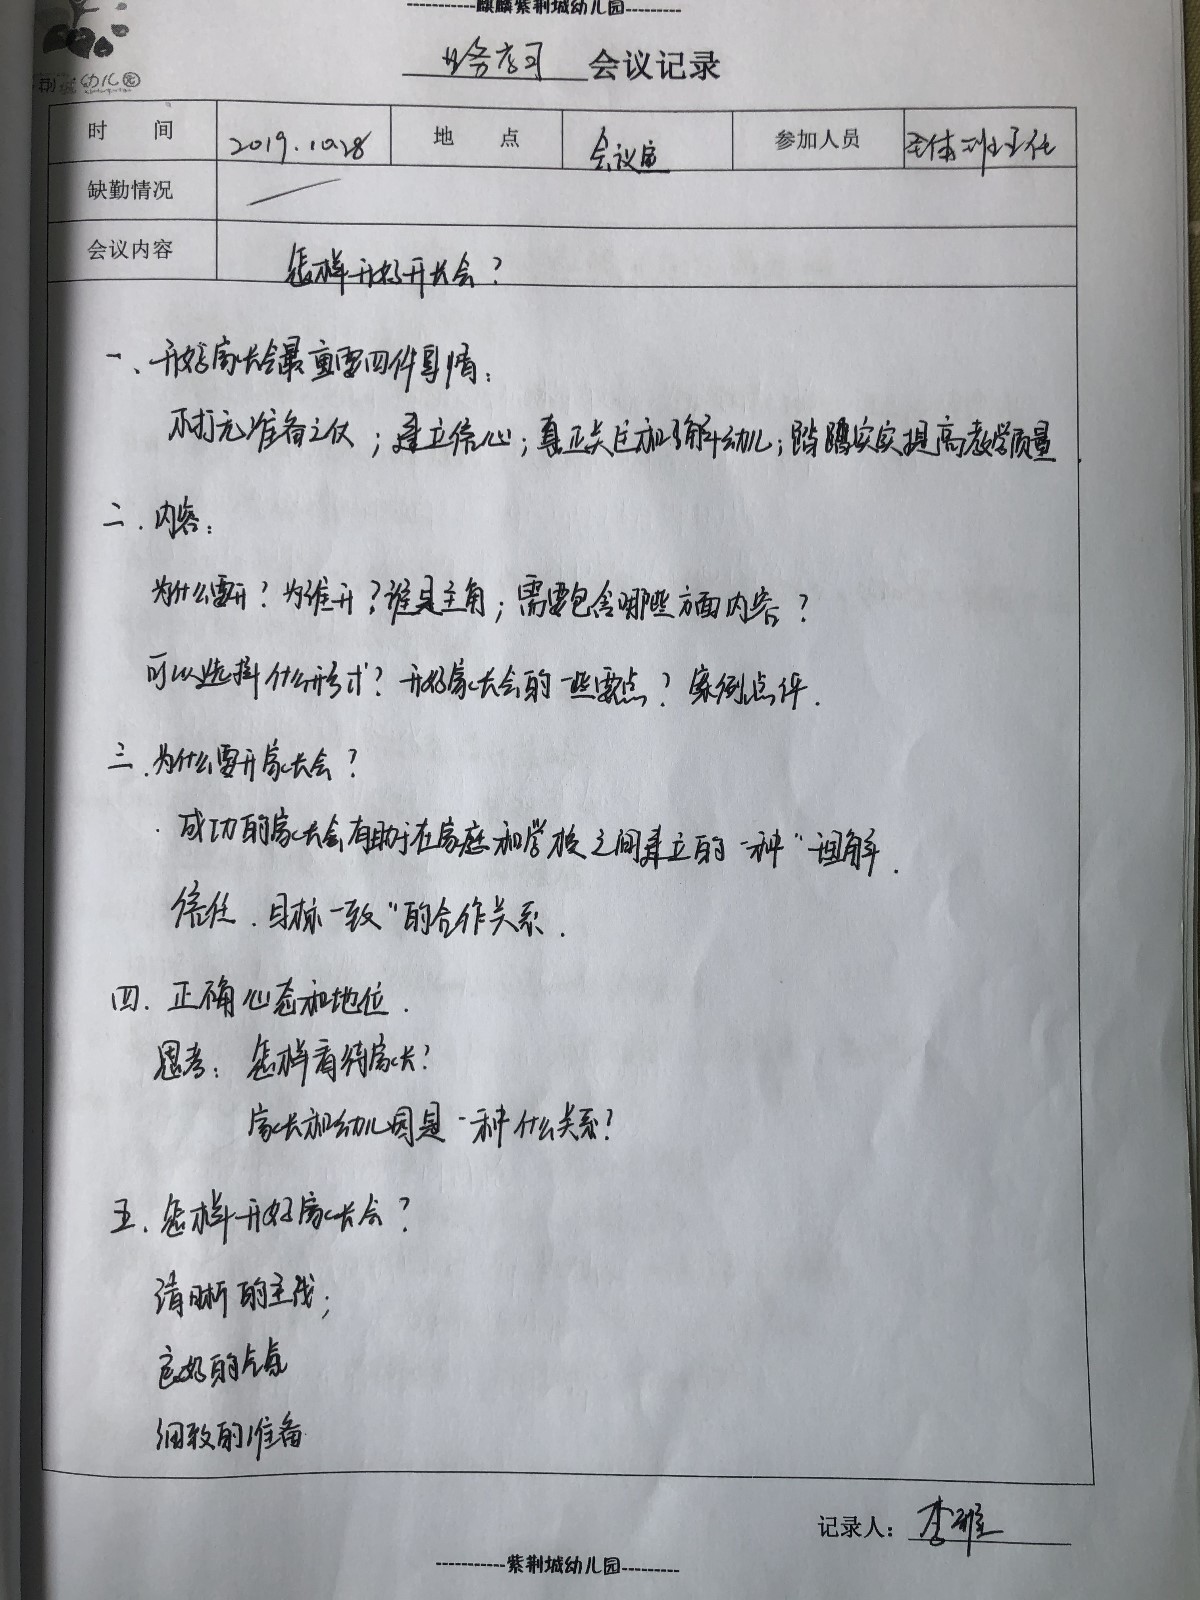 -----------麒麟紫荆城幼儿园---------
荆城幼儿园
业务学习 会议记录
时 间 2019.10.28 地 点 会议室 参加人员 全体班主任
缺勤情况
会议内容 怎样开好开长会?
一、开好家长会最重要四件事情:
不打无准备之仗;建立信心;真正关注和了解幼儿;踏踏实实提高教学质量.
二.内容:
为什么要开?为谁开?谁是主角;需要包含哪些方面内容?
可以选择什么形式?开好家长会的一些要点?案例点评.
三.为什么要开家长会?
.成功的家长会有助于在家庭和学校之间建立的一种“理解.
信任.目标一致”的合作关系.
四.正确心态和地位.
思考:怎样看待家长?
家长和幼儿园是一种什么关系?
五.怎样开好家长会?
清晰的主线;
良好的气氛
细致的准备
记录人:李雅
-----------紫荆城幼儿园---------